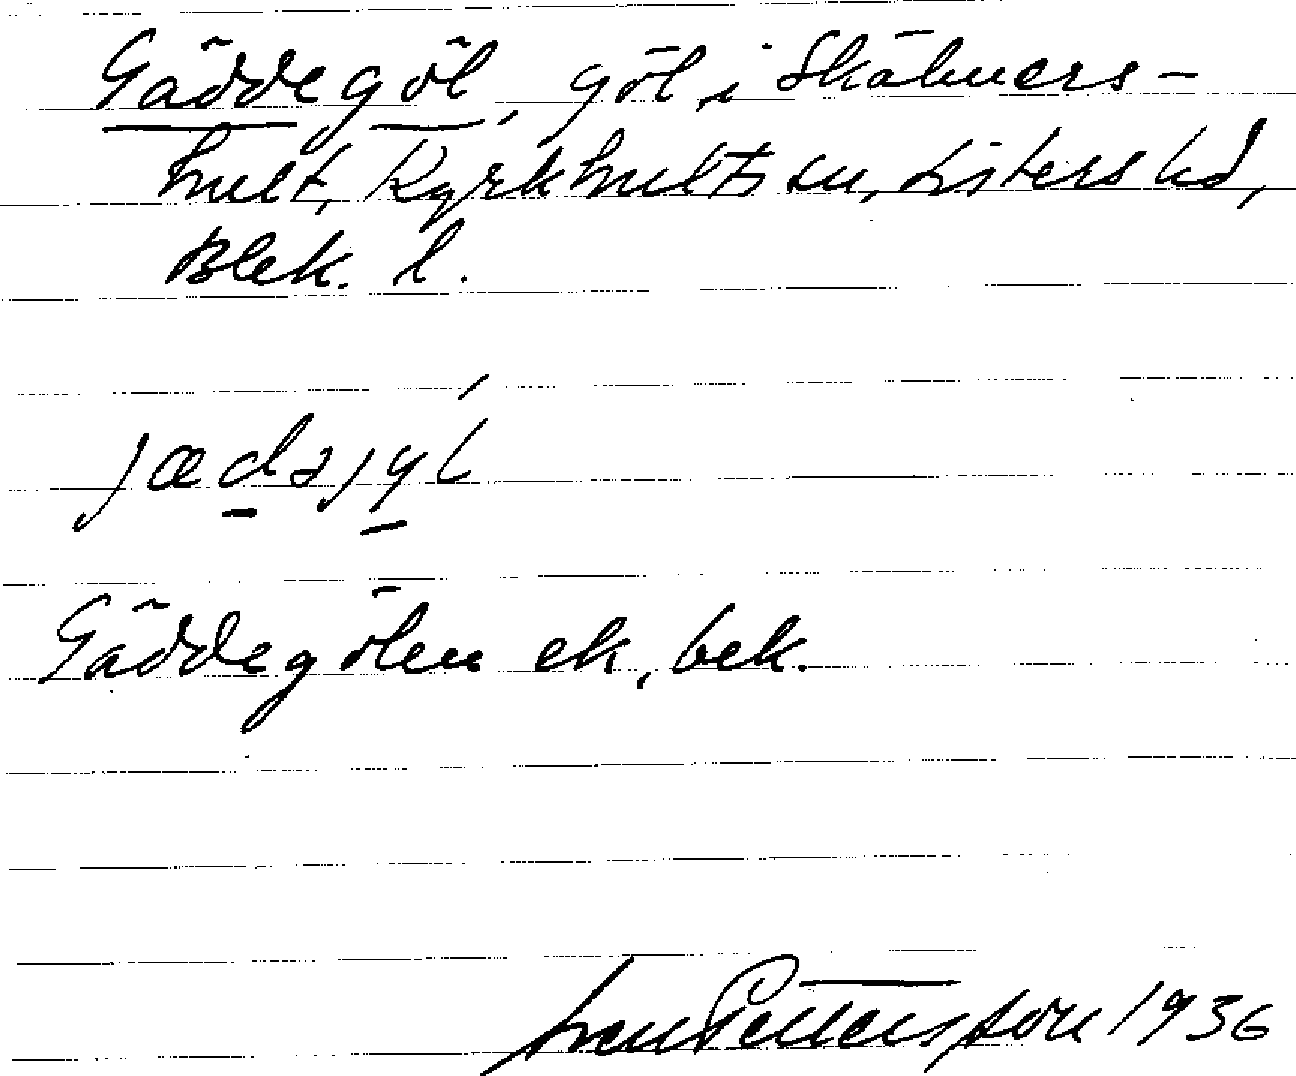 Gäddegöl, göl i Skälmers-
hult, Kyrkhults sn, Listers hd,
Blek. l.
jædəjyl
Gäddegölen ek, bek.
Sven Pettersson 1936